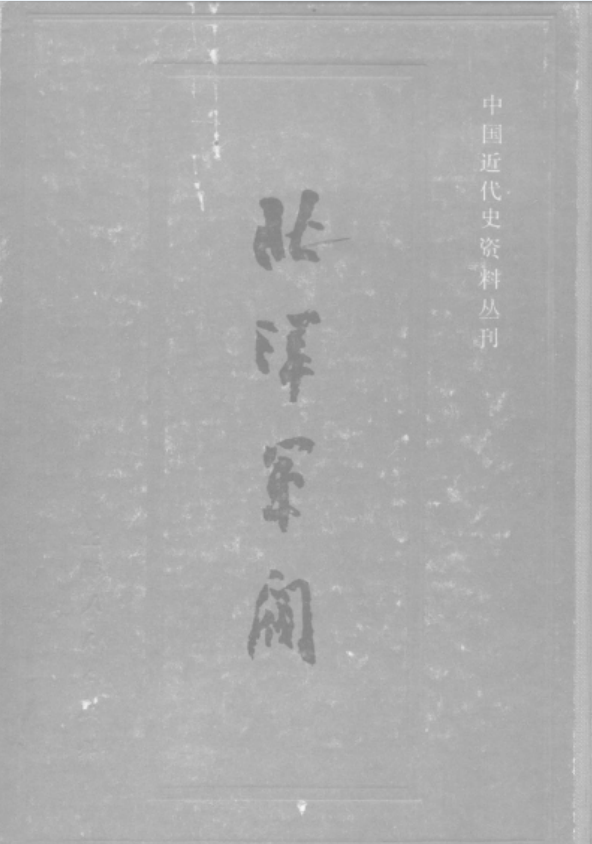 中国近代史资料丛刊
北洋军阀